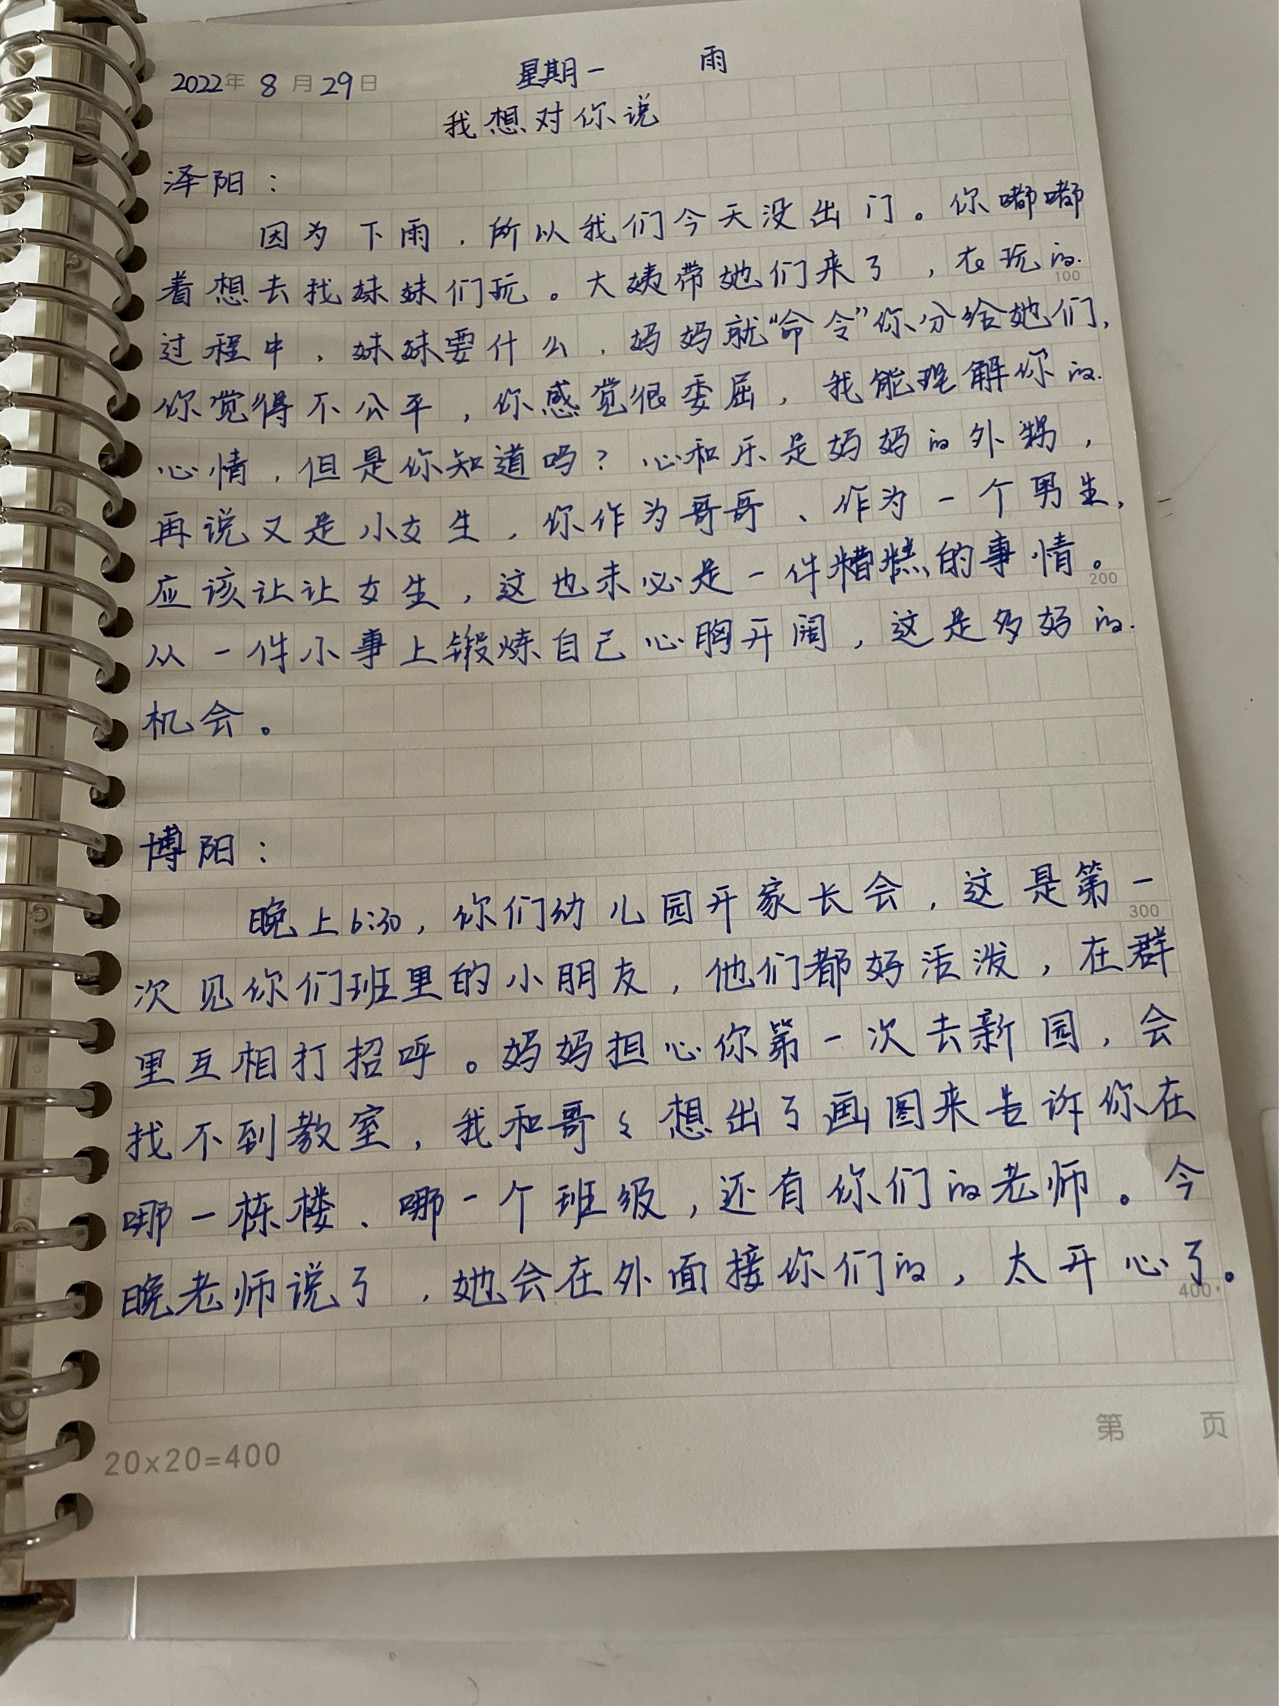 2022年 8月29日 星期一 雨
我想对你说
泽阳：
因为下雨，所以我们今天没出门。你嘟嘟
着想去找妹妹们玩。大姨带她们来了，在玩的
100
过程中，妹妹要什么，妈妈就“命令”你分给她们，
你觉得不公平，你感觉很委屈，我能理解你的
心情，但是你知道吗？心和乐是妈妈的外甥，
再说又是小女生，你作为哥哥、作为一个男生，
应该让让女生，这也未必是一件糟糕的事情。
200
从一件小事上锻炼自己心胸开阔，这是多好的
机会。
博阳：
晚上6:30，你们幼儿园开家长会，这是第一
300
次见你们班里的小朋友，他们都好活泼，在群
里互相打招呼。妈妈担心你第一次去新园，会
找不到教室，我和哥々想出了画图来告诉你在
哪一栋楼、哪一个班级，还有你们的老师。今
晚老师说了，她会在外面接你们的，太开心了。
400
第 页
20×20=400